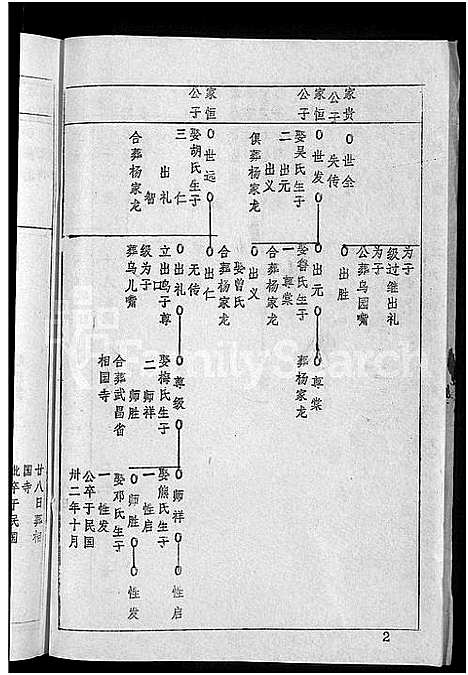 家贵
公子
家恒
公子
家恒
公子
世全
失传
世发
娶吴氏生子
二 出元
出义
俱葬杨家龙
世远
娶胡氏生子
三 仁
出礼
智
合葬杨家龙
为子
级过继出礼
为子
公葬乌园嘴
出胜
出元
娶鲁氏生子
一 尊棠
合葬杨家龙
出义
娶曾氏
合葬杨家龙
出仁
无传
出礼
立出鸣子尊
级为子
葬乌儿嘴
尊棠
葬杨家龙
尊级
娶梅氏生子
二 师祥
师胜
合葬武昌省
相国寺
师祥
娶熊氏生子
一 性启
师胜
娶邓氏生子
一 性发
公卒于民国
卅二年十月
性启
性发
廿八日葬相
国寺
卒于民国
2
FamilySearch